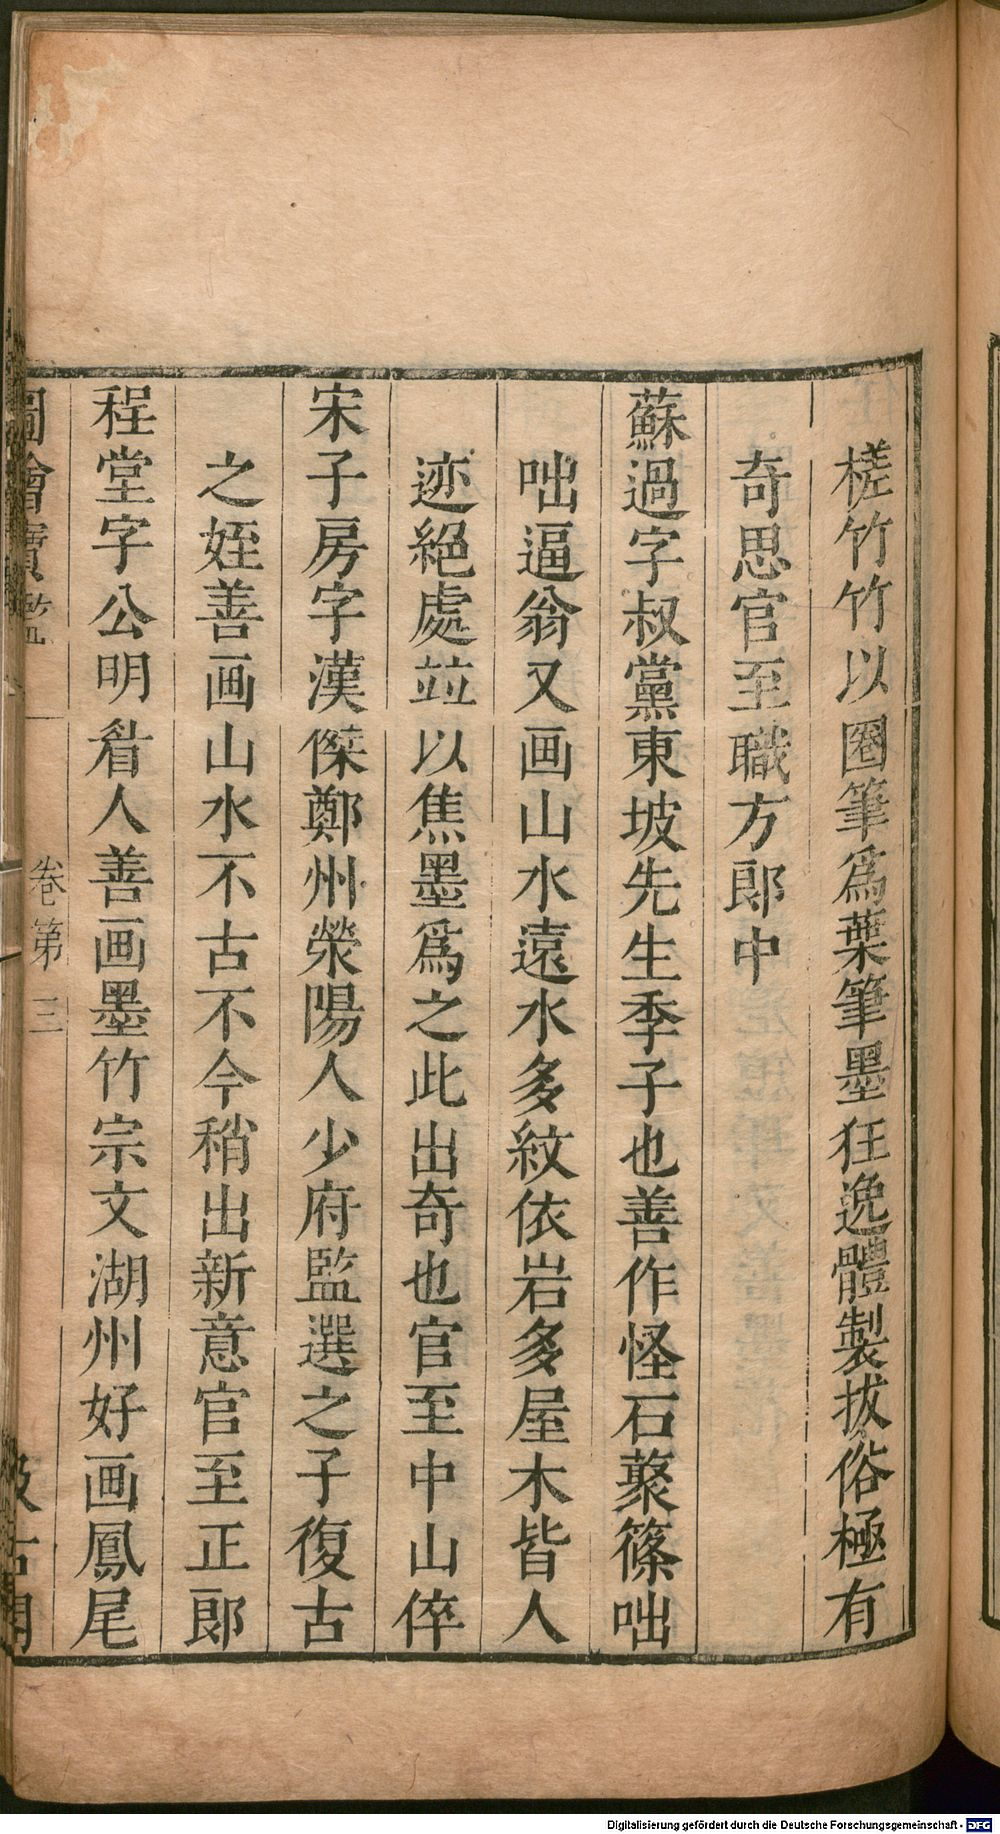 槎竹竹以圈筆爲葉筆墨狂逸體製拔俗極有
奇思官至職方郎中
蘇過字叔黨東坡先生季子也善作怪石䕺篠咄
咄逼翁又画山水遠水多紋依岩多屋木皆人
迹絕處並以焦墨爲之此出奇也官至中山倅
宋子房字漢傑鄭州滎陽人少府監選之子復古
之姪善画山水不古不今稍出新意官至正郎
程堂字公明眉人善画墨竹宗文湖州好画鳳尾
圖繪寶鑒 卷第三 汲古閣
Digitalisierung gefördert durch die Deutsche Forschungsgemeinschaft - DFG